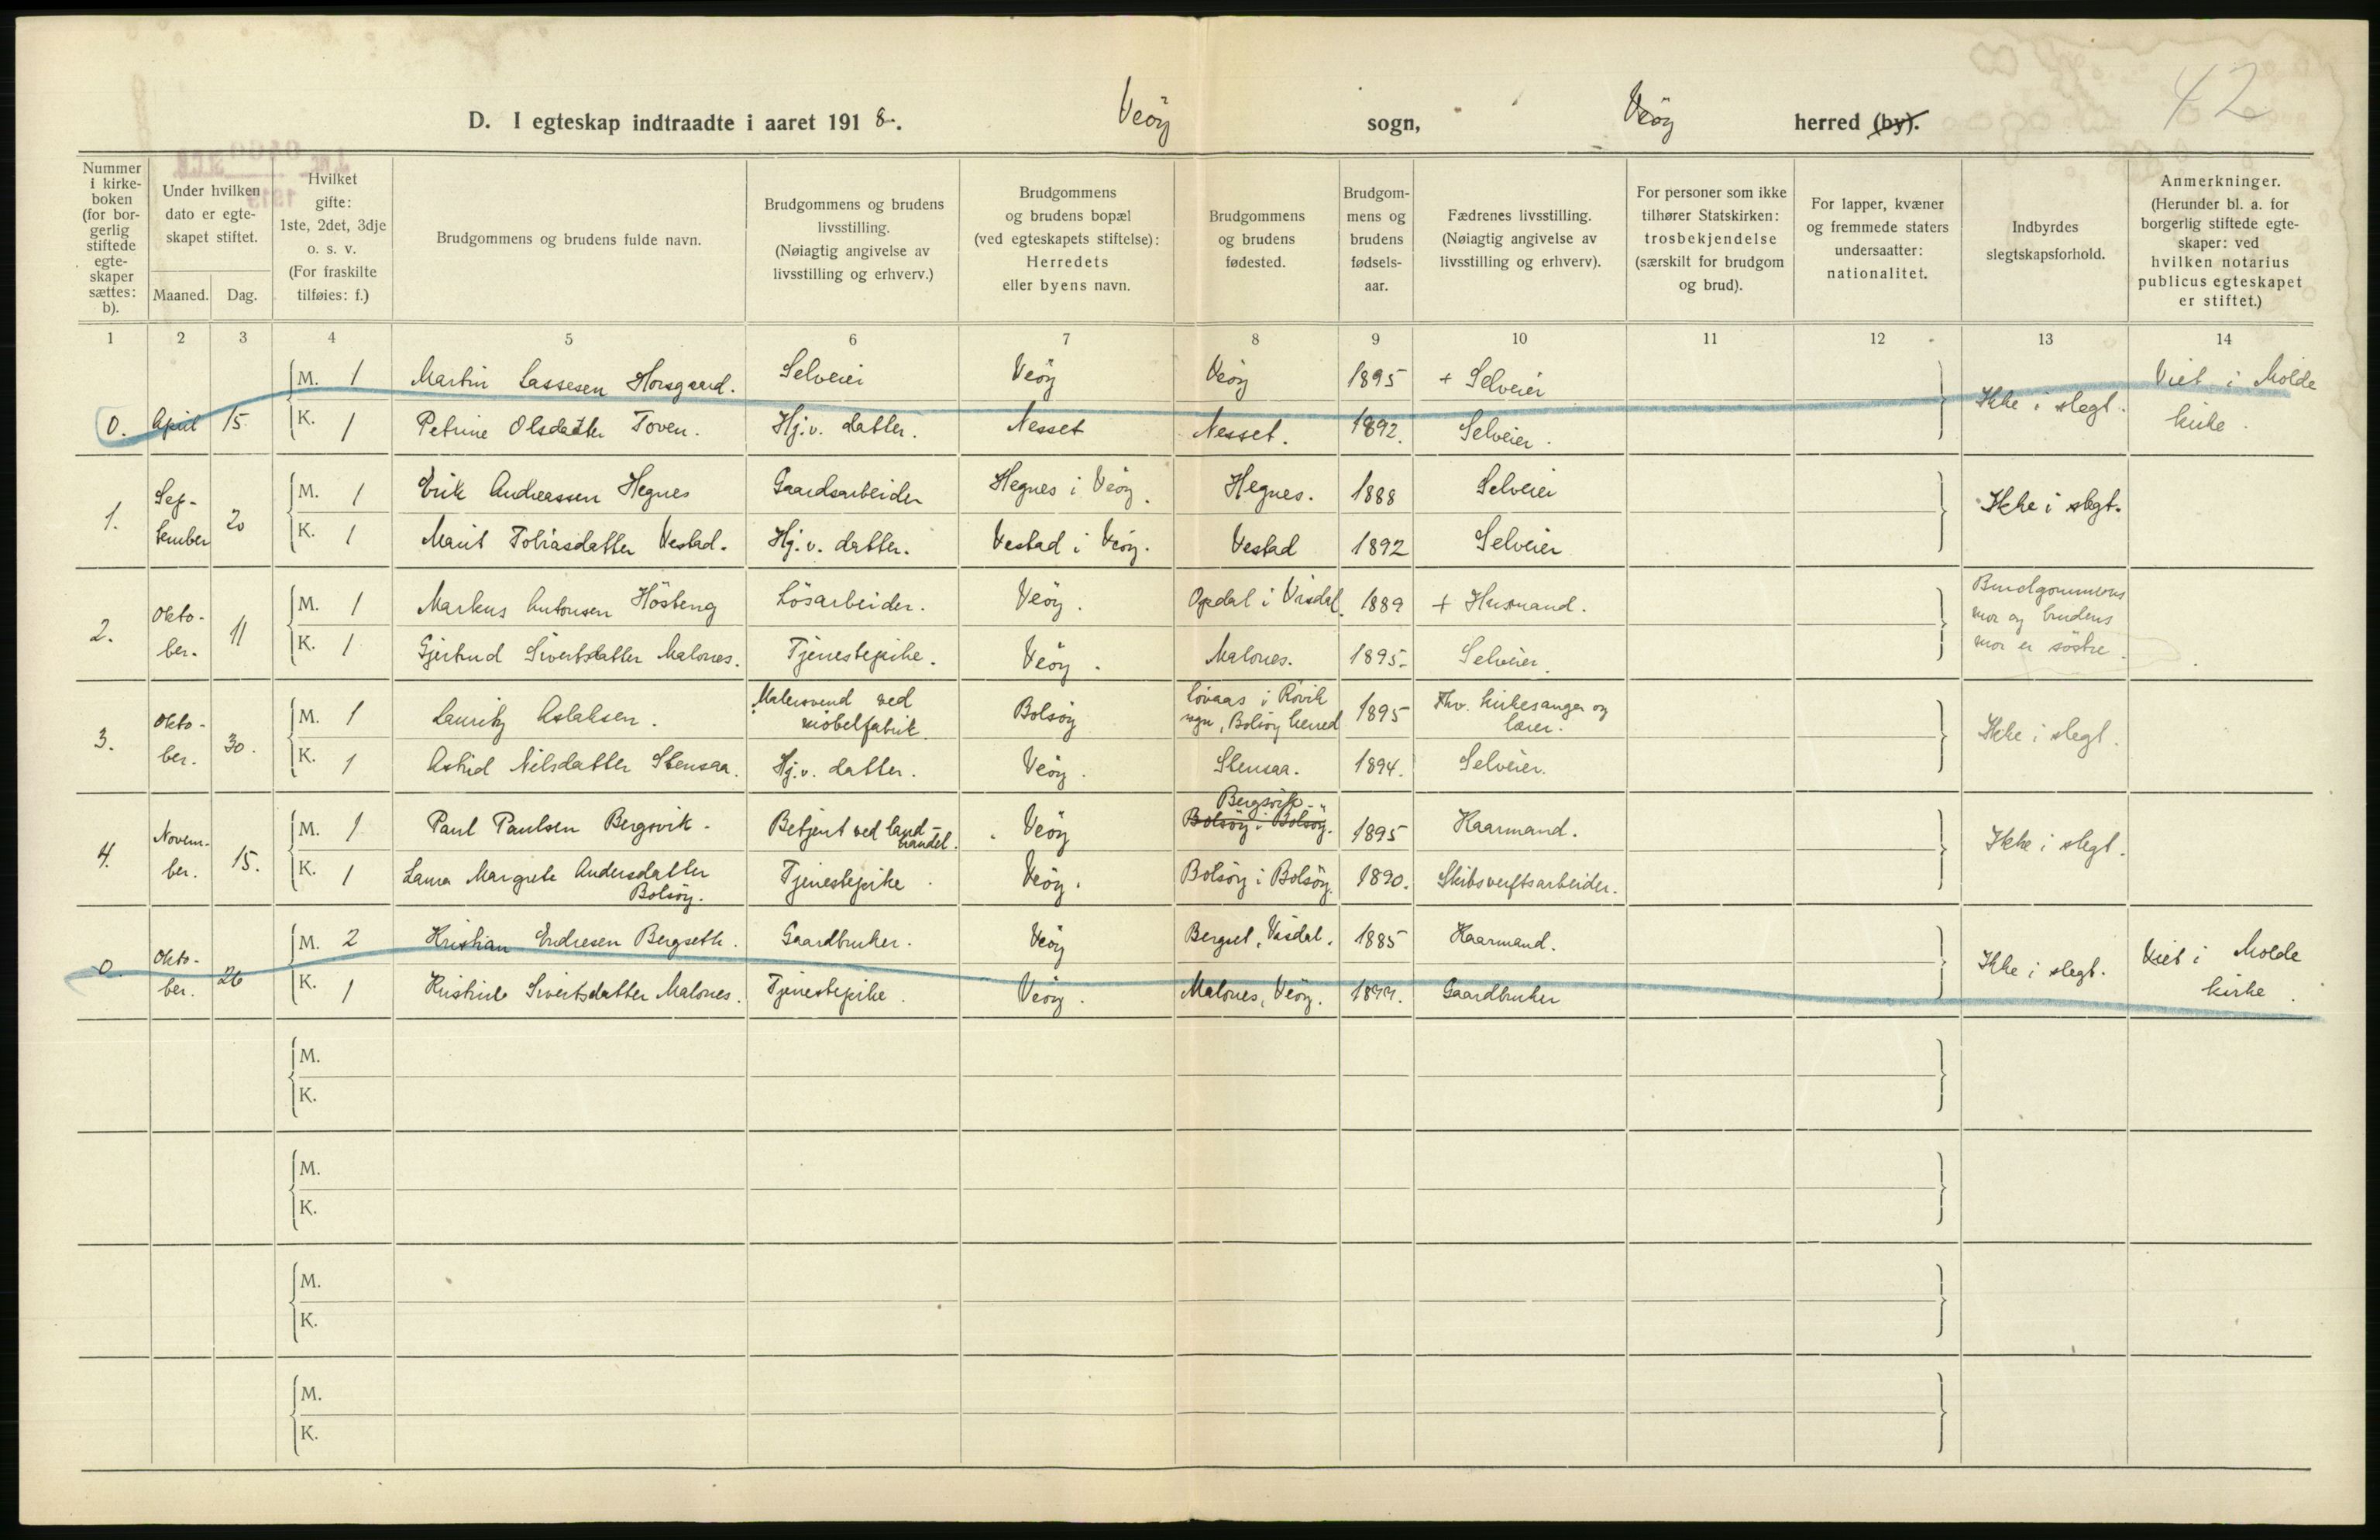 42
D. I egteskap indtraadte i aaret 1918. Veöy sogn, Veöy herred (by).
Nummer i kirkeboken (for borgerlig stiftede egteskaper sættes: b).
Under hvilken dato er egteskapet stiftet.
Maaned. Dag.
Hvilket gifte: 1ste, 2det, 3dje o. s. v. (For fraskilte tilføies: f.)
Brudgommens og brudens fulde navn.
Brudgommens og brudens livsstilling. (Nøiagtig angivelse av livsstilling og erhverv.)
Brudgommens og brudens bopæl (ved egteskapets stiftelse): Herredets eller byens navn.
Brudgommens og brudens fødested.
Brudgommens og brudens fødselsaar.
Fædrenes livsstilling. (Nøiagtig angivelse av livsstilling og erhverv).
For personer som ikke tilhører Statskirken: trosbekjendelse (særskilt for brudgom og brud).
For lapper, kvæner og fremmede staters undersaatter: nationalitet.
Indbyrdes slegtskapsforhold.
Anmerkninger. (Herunder bl. a. for borgerlig stiftede egteskaper: ved hvilken notarius publicus egteskapet er stiftet.)
1 2 3 4 5 6 7 8 9 10 11 12 13 14
0. April 15.
M. 1 Martin Lassesen Horsgaard. Selveier Veöy Veöy 1895 + Selveier
K. 1 Petrine Olsdatter Toven. Hj.v. datter. Nesset Nesset. 1892. Selveier.
Ikke i slegt. Viet i Molde kirke.
1. September 20
M. 1 Erik Andreassen Hegnes Gaardsarbeider Hegnes i Veöy. Hegnes. 1888 Selveier
K. 1 Marit Tobiasdatter Vestad. Hj.v. datter. Vestad i Veöy. Vestad 1892 Selveier
Ikke i slegt.
2. Oktober. 11
M. 1 Markus Antonsen Hösteng Lösarbeider. Veöy. Opdal i Visdal. 1889 + Husmand.
K. 1 Gjertrud Sivertsdatter Malones. Tjenestepike. Veöy. Malones. 1895. Selveier.
Brudgommens mor og brudens mor er söstre.
3. Oktober. 30.
M. 1 Lauritz Aslaksen. Malersvend ved möbelfabrik. Bolsöy Lövaas i Rövik sogn, Bolsöy herred 1895 Fhv. kirkesanger og lærer.
K. 1 Astrid Nilsdatter Stensaa. Hj.v. datter. Veöy. Stensaa. 1894. Selveier.
Ikke i slegt.
4. November. 15.
M. 1 Paul Paulsen Bergsvik. Betjent ved landhandel. Veöy Bergsvik Bolsöy i Bolsöy. 1895 Haarmand.
K. 1 Laura Margrete Andersdatter Bolsöy. Tjenestepike. Veöy. Bolsöy i Bolsöy. 1890. Skibsverftsarbeider.
Ikke i slegt.
0. Oktober. 26
M. 2 Kristian Endresen Bergseth. Gaardbruker. Veöy Bergset, Visdal. 1885 Haarmand.
K. 1 Kristine Sivertsdatter Malones. Tjenestepike. Veöy. Malones, Veöy. Gaardbruker
Ikke i slegt. Viet i Molde kirke.
M.
K.
M.
K.
M.
K.
M.
K.